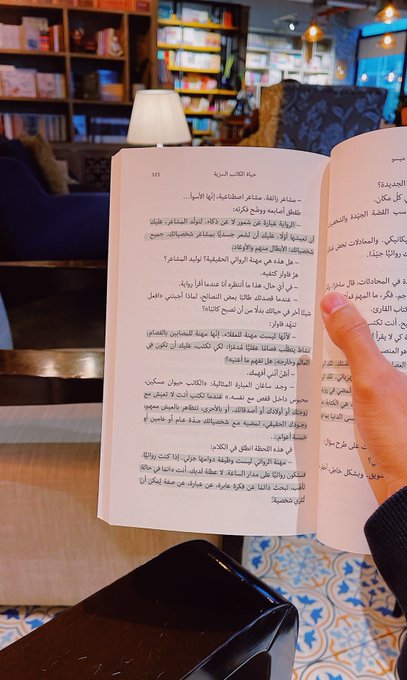 حياة الكاتب السرية
125
– مشاعر زائفة. مشاعر اصطناعية، إنّها الأسوأ...
طقطق أصابعه ووضح فكرته:
– الرواية عبارة عن شعور لا عن ذكاء. لتولّد المشاعر، عليك
أن تعيشها أوّلًا. عليك أن تشعر جسديًّا بمشاعر شخصياتك. جميع
شخصياتك: الأبطال منهم والأوغاد.
– هل هذه هي مهنة الروائي الحقيقية؟ توليد المشاعر؟
هزّ فاولز كتفيه.
– في أي حال، هذا ما أنتظره أنا عندما أقرأ رواية.
– عندما قصدتك طالبًا بعض النصائح، لماذا أجبتني «افعل
شيئًا آخر في حياتك بدلًا من أن تصبح كاتبًا»؟
تنهّد فاولز:
– لأنها ليست مهنة للعقلاء. إنّها مهنة للمصابين بالفصام.
نشاط يتطلّب فصامًا عقليًّا مُدمّرًا: لكي تكتب، عليك أن تكون في
العالم وخارجه. هل تفهم ما أعنيه؟
– أظنّ أنني أفهمك.
– وجد ساغان العبارة المثالية: «الكاتب حيوان مسكين،
محبوس داخل قفص مع نفسه.» عندما تكتب أنت لا تعيش مع
زوجتك أو أولادك أو أصدقائك. أو بالأحرى، تتظاهر بالعيش معهم.
وجودك الحقيقي، تمضيه مع شخصياتك مدة عام أو عامين أو
خمسة أعوام...
في هذه اللحظة انطلق في الكلام:
– مهنة الروائي ليست وظيفة دوامها جزئي. إذا كنت روائيًّا،
فستكون روائيًّا على مدار الساعة. لا عطلة لديك. أنت دائمًا في حالة
تأهّب، تبحث دائمًا عن فكرة عابرة، عن عبارة، عن صفة يُمكن أن
تُثري شخصية.
ميسو
الجديدة؟
كلّ مكان.
القصة الجيّدة
روائيًّا جيّدًا.